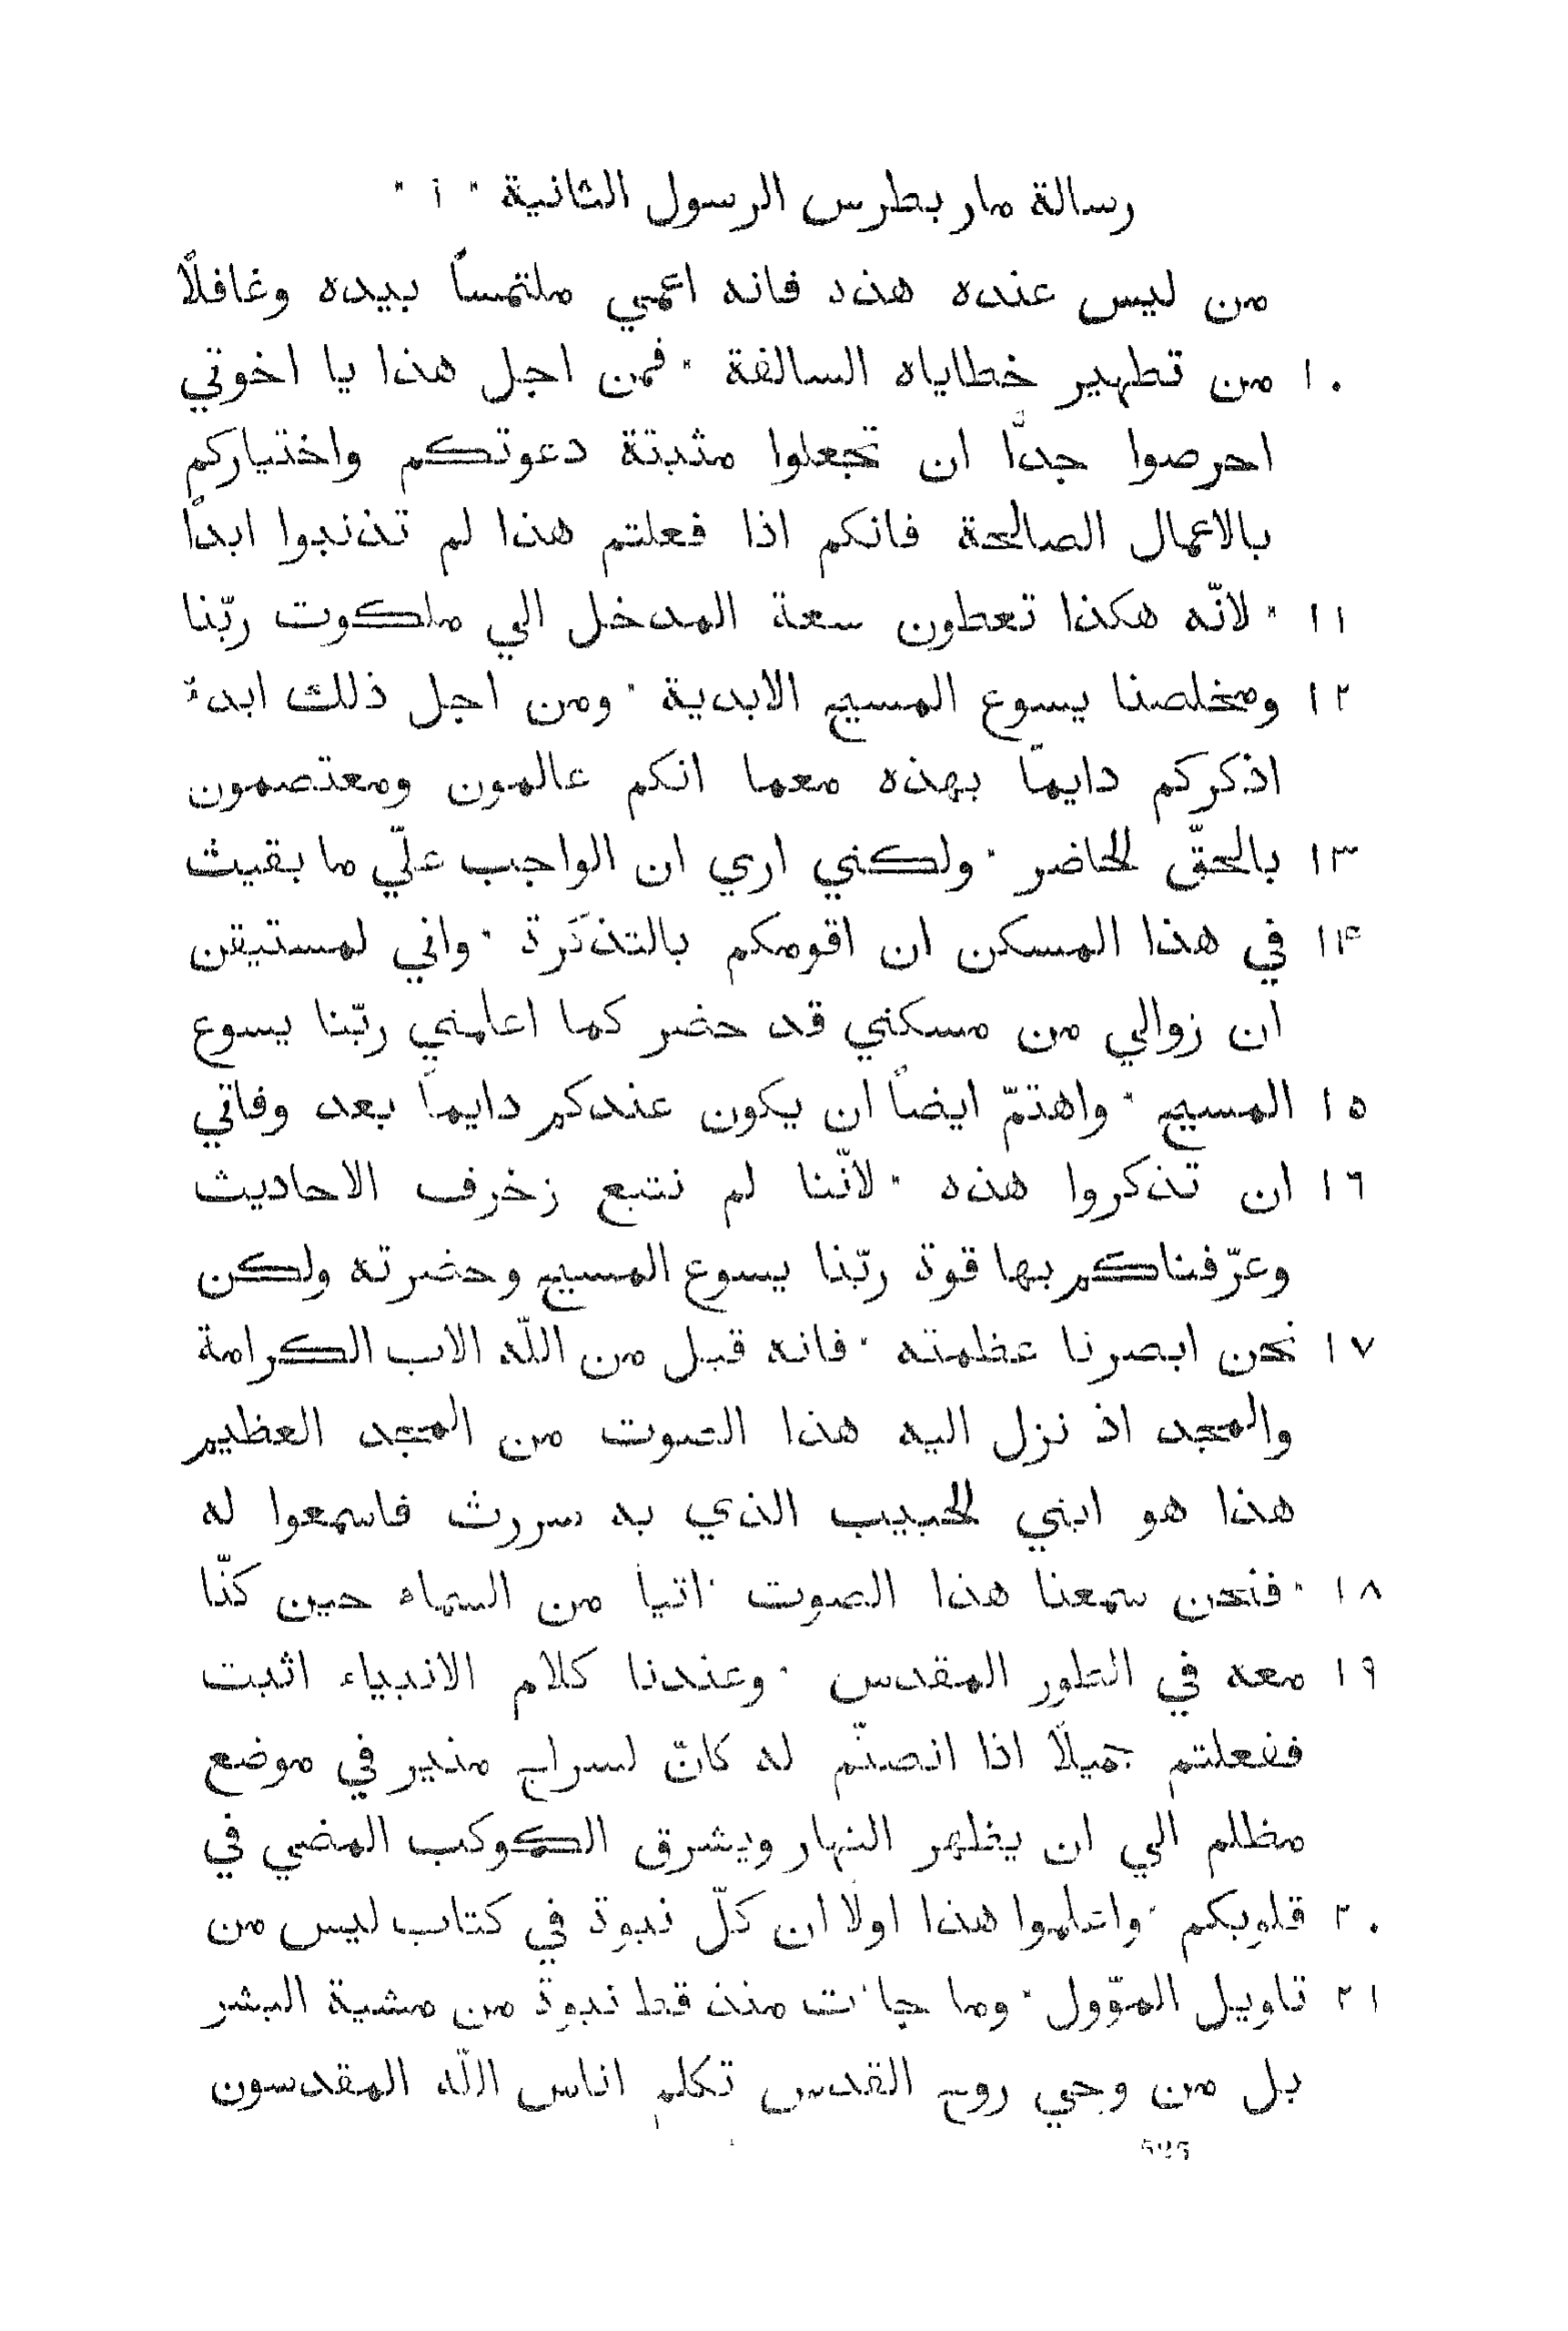 رسالة مار بطرس الرسول الثانية * ١ *
من ليس عنده هذه فانه اعمي ملتمساً بيده وغافلًا
١٠ من تطهير خطاياه السالفة * فمن اجل هذا يا اخوتي
احرصوا جدًّا ان تجعلوا مثبتة دعوتكم واختياركم
بالاعمال الصالحة فانكم اذا فعلتم هذا لم تذنبوا ابداً
١١ * لانّه هكذا تعطون سعة المدخل الي ملكوت ربّنا
١٢ ومخلصنا يسوع المسيح الابدية * ومن اجل ذلك ابدء
اذكركم دايماً بهذه معما انكم عالمون ومعتصمون
١٣ بالحقّ الحاضر * ولكني اري ان الواجب علّي ما بقيت
١٤ في هذا المسكن ان اقومكم بالتذكرة * واني لمستيقن
ان زوالي من مسكني قد حضر كما اعلمني ربّنا يسوع
١٥ المسيح * واهتمّ ايضاً ان يكون عندكم دايماً بعد وفاتي
١٦ ان تذكروا هذه * لانّنا لم نتبع زخرف الاحاديث
وعرّفناكم بها قوة ربّنا يسوع المسيح وحضرته ولكن
١٧ نحن ابصرنا عظمته * فانه قبل من اللّه الاب الكرامة
والمجد اذ نزل اليه هذا الصوت من المجد العظيم
هذا هو ابني الحبيب الذي به سررت فاسمعوا له
١٨ * فنحن سمعنا هذا الصوت اتياً من السماء حين كنّا
١٩ معه في الطور المقدس * وعندنا كلام الانبياء اثبت
ففعلتم جميلًا اذا انصتّم له كانّ لسراج منير في موضع
مظلم الي ان يظهر النهار ويشرق الكوكب المضي في
٢٠ قلوبكم * واعلموا هذا اولًا ان كلّ نبوة في كتاب ليس من
٢١ تاويل المؤوّل * وما جاءت منذ قط نبوة من مشية البشر
بل من وحي روح القدس تكلم اناس اللّه المقدسون